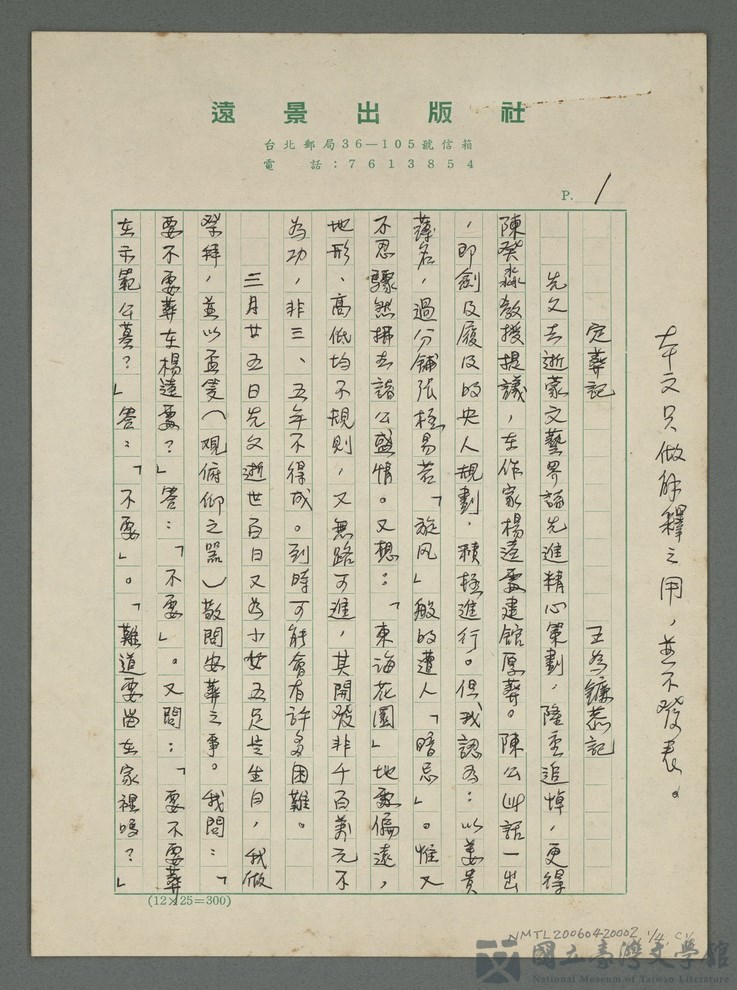 遠景出版社
台北郵局36—105號信箱
電話：7613854
P. 1
本文只做解釋之用，並不發表。
定葬記　王為鐮恭記
先父去逝蒙文藝界諸先進精心策劃，隆重追悼，更得
陳癸淼教授提議，在作家楊逵處建館厚葬。陳公此話一出
，即劍及履及的央人規劃，積極進行。但我認為：以姜貴
薄名，過分舖張極易若「旋风」般的遭人「暗忌」。惟又
不忍驟然拂去諸公盛情。又想：「東海花園」地處偏遠，
地形、高低均不規則，又無路可進，其開發非千百萬元不
為功，非三、五年不得成。到時可能會有許多困難。
三月廿五日先父逝世百日又為小女五足歲生日，我做
祭拜，並以盃筊（观俯仰之器）敬問安葬之事。我問：「
要不要葬在楊逵處？」答：「不要」。又問：「要不要葬
在示範公墓？」答：「不要」。「難道要留在家裡嗎？」
(12×25=300)
NMTL20060420002 1/4
國立臺灣文學館
National Museum of Taiwan Literature